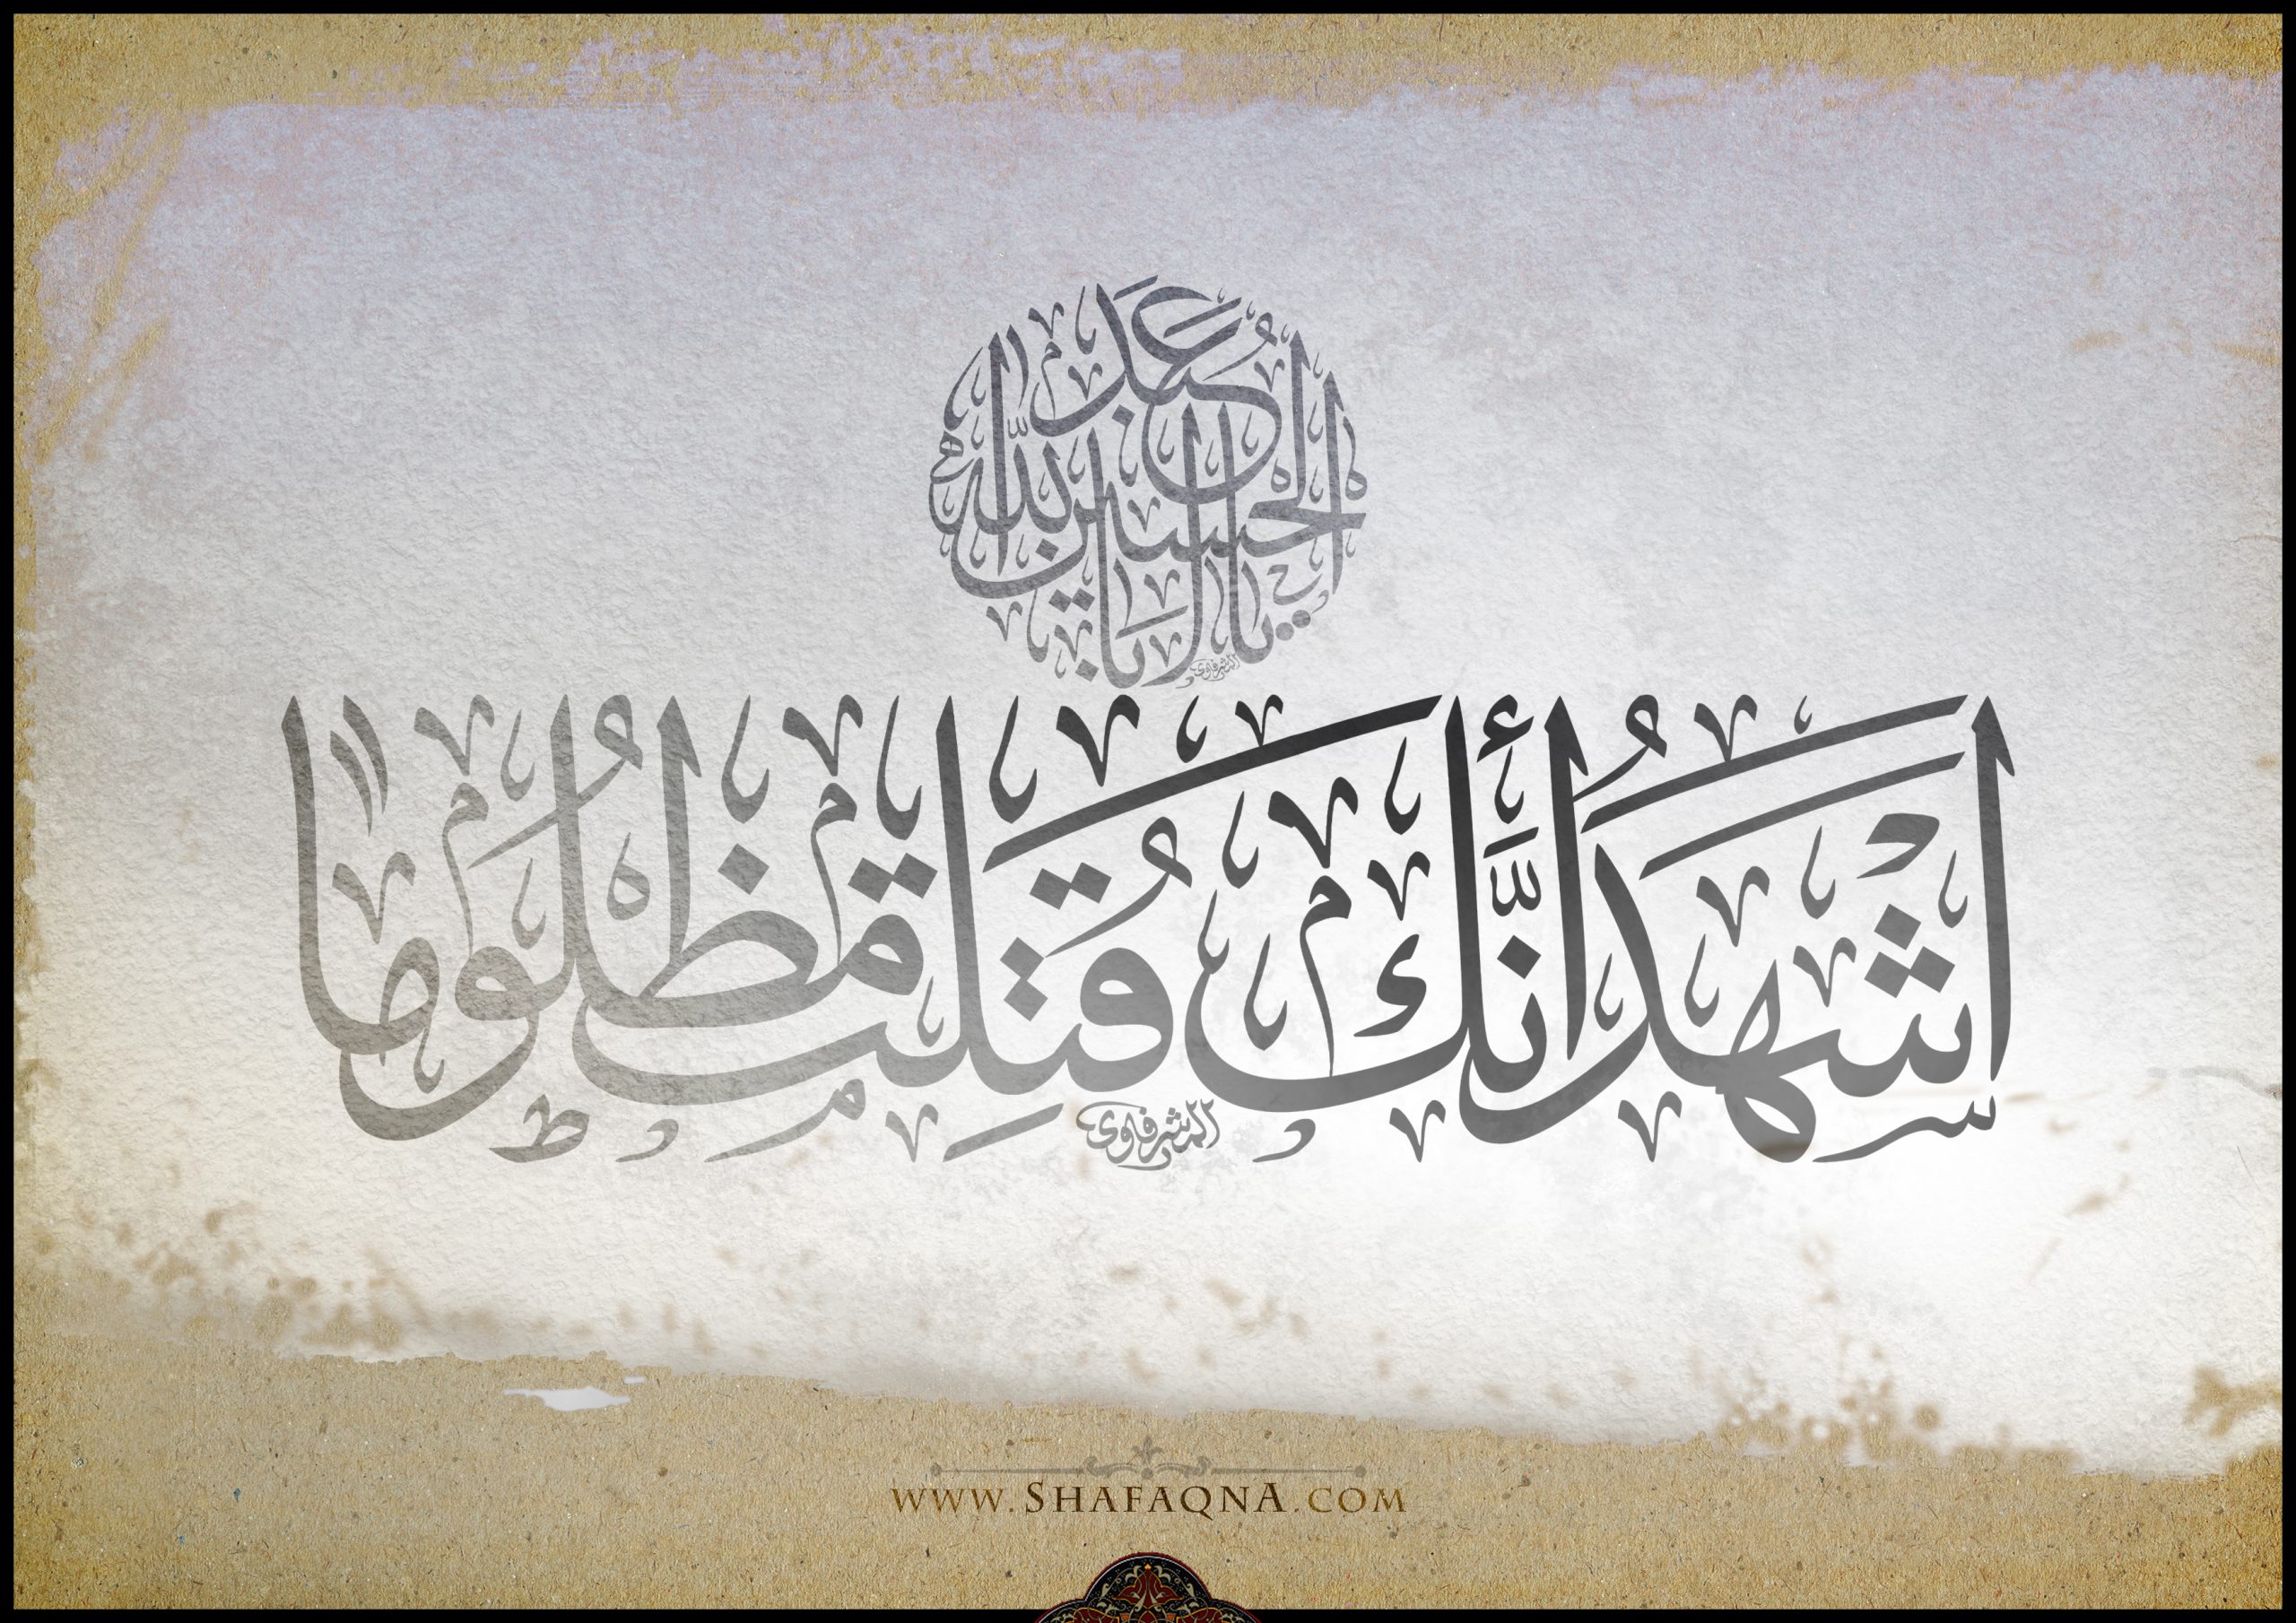 يا أبا عبد الله الحسين
أَشْهَدُ أَنَّكَ قُتِلتَ مَظْلُوماً
المشرفاوي
WWW.SHAFAQNA.COM